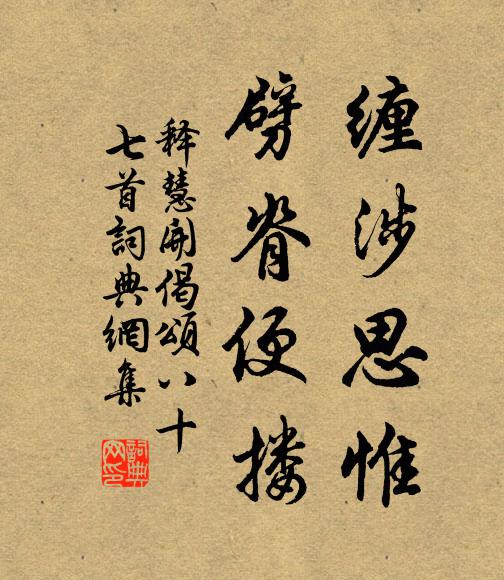 缠涉思惟
劈脊便搂
释慧開偈頌八十
七首詞典網集
詞典网印